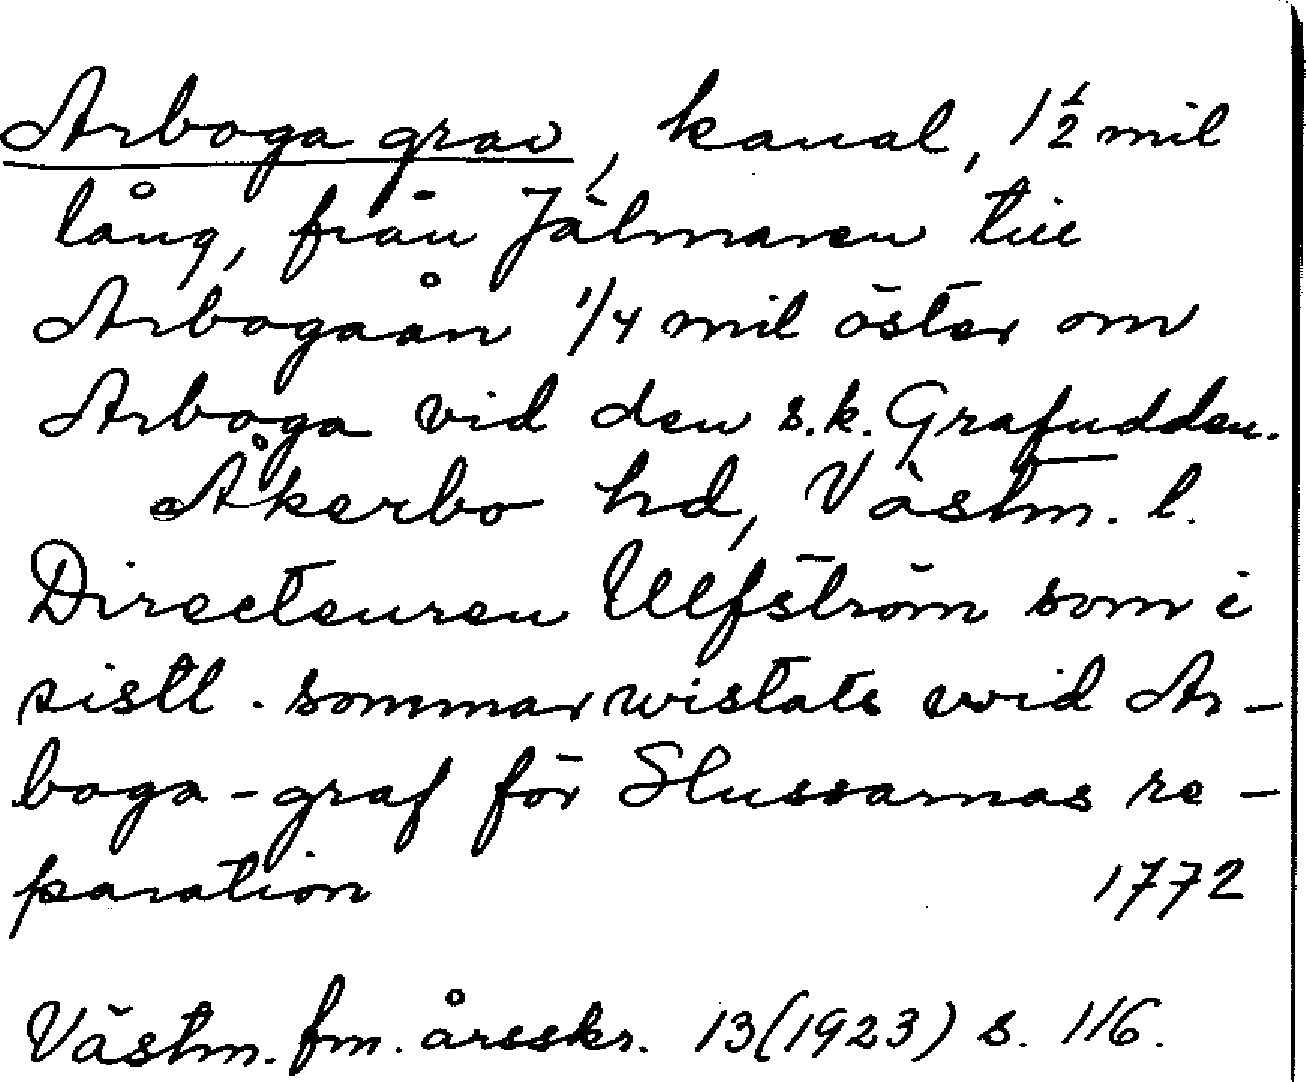 Arboga grav, kanal, 1 1/2 mil
lång, från Jälmaren till
Arbogaån 1/4 mil öster om
Arboga vid den s.k. Grafudden.
Åkerbo hd, Västm. l.
Directeuren Ulfström som i
sistl. sommar wistats wid Ar-
boga-graf för Slussarnas re-
paration 1772
Västm. fm. årsskr. 13(1923) s. 116.